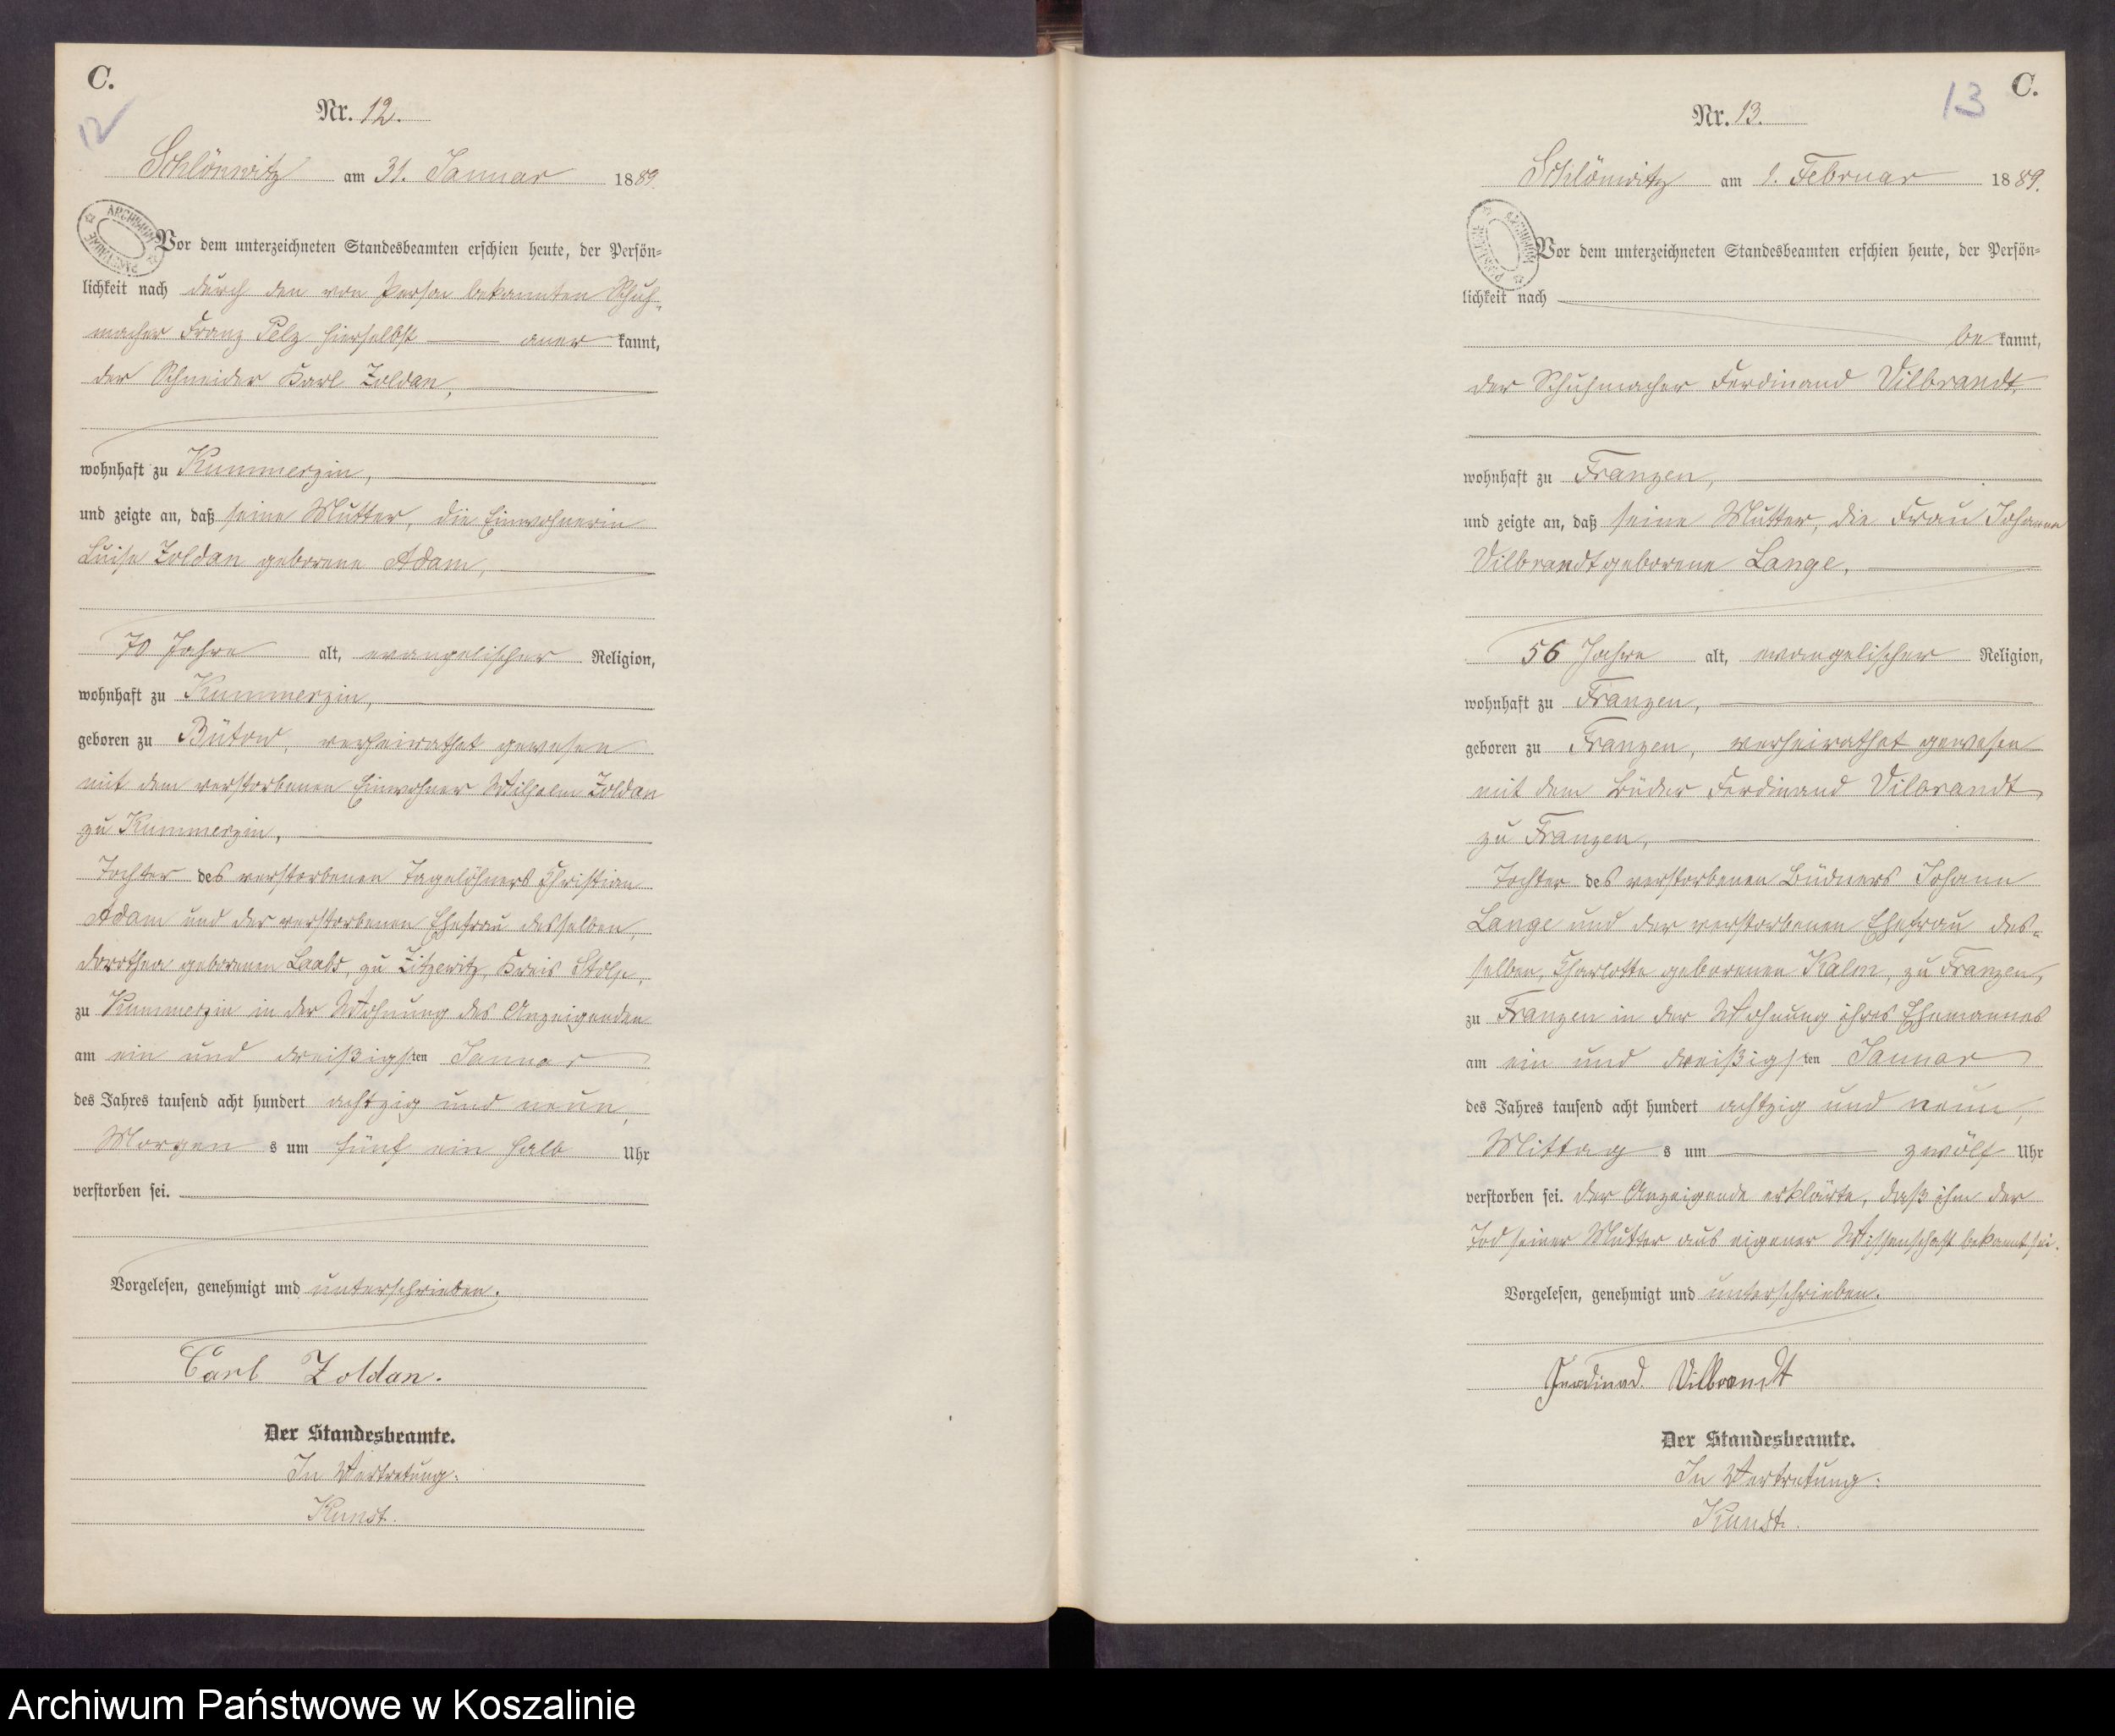 C.
12
Nr. 12.
Schlönwitz am 31. Januar 1889.
Vor dem unterzeichneten Standesbeamten erschien heute, der Persön-
lichkeit nach durch den von Person bekannten Schuh-
macher Franz Pelz hierselbst aner kannt,
der Schneider Karl Zoldan,
wohnhaft zu Kummerzin,
und zeigte an, daß seine Mutter, die Einwohnerin
Luise Zoldan geborene Adam,
70 Jahre alt, evangelischer Religion,
wohnhaft zu Kummerzin,
geboren zu Bütow, verheirathet gewesen
mit dem verstorbenen Einwohner Wilhelm Zoldan
zu Kummerzin,
Tochter des verstorbenen Tagelöhners Christian
Adam und der verstorbenen Ehefrau desselben,
Dorothea geborenen Laabs, zu Zitzewitz, Kreis Stolp,
zu Kummerzin in der Wohnung des Anzeigenden
am ein und dreißigsten Januar
des Jahres tausend acht hundert achtzig und neun,
Morgens um fünf ein halb Uhr
verstorben sei.
Vorgelesen, genehmigt und unterschrieben.
Carl Zoldan.
Der Standesbeamte.
In Vertretung:
Kunst.
C.
13
Nr. 13.
Schlönwitz am 1. Februar 1889.
Vor dem unterzeichneten Standesbeamten erschien heute, der Persön-
lichkeit nach
be kannt,
der Schuhmacher Ferdinand Vilbrandt,
wohnhaft zu Franzen,
und zeigte an, daß seine Mutter, die Frau Johanna
Vilbrandt geborene Lange,
56 Jahre alt, evangelischer Religion,
wohnhaft zu Franzen,
geboren zu Franzen, verheirathet gewesen
mit dem Ferdinand Vilbrandt
zu Franzen,
Tochter des verstorbenen Büdners Johann
Lange und der verstorbenen Ehefrau des-
selben, Charlotte geborenen Kalm, zu Franzen,
zu Franzen in der Wohnung ihres Ehemannes
am ein und dreißigsten Januar
des Jahres tausend acht hundert achtzig und neun,
Mittags um zwölf Uhr
verstorben sei. Der Anzeigende erklärte, daß ihm der
Tod seiner Mutter aus eigener Wissenschaft bekannt sei.
Vorgelesen, genehmigt und unterschrieben.
Ferdinad. Vilbrandt
Der Standesbeamte.
In Vertretung:
Kunst.
Archiwum Państwowe w Koszalinie